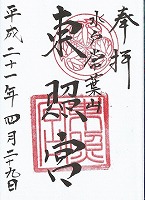 奉拝
水戸常葉山
東照宮
平成二十一年四月二十九日